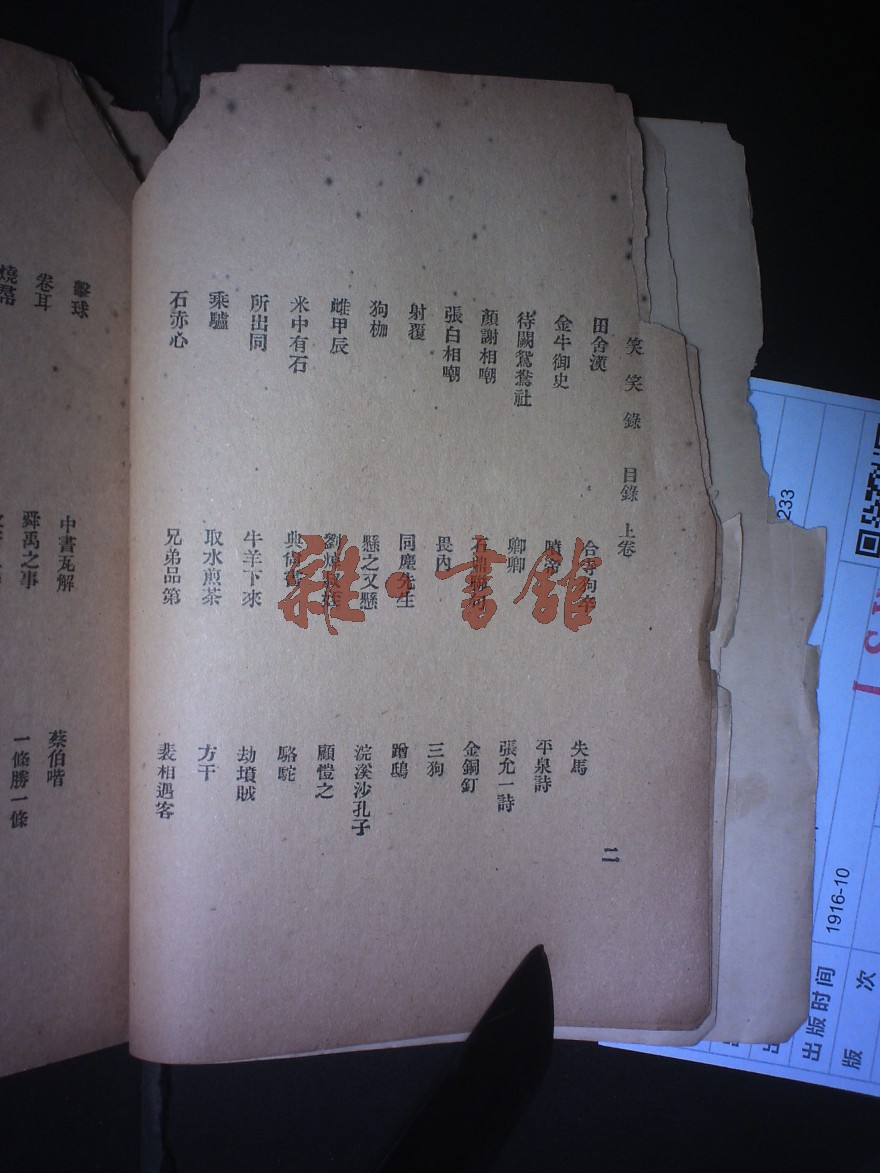 笑笑錄 目錄 上卷 二
田舍漢 合寺狗卒 失馬
金牛御史 噴帝 平泉詩
待闕鴛鴦社 卿卿 張允一詩
顏謝相嘲 金銅釘
張白相嘲 畏內 三狗
射覆 同塵先生 蹭鴟
狗枷 懸之又懸 浣溪沙孔子
雌甲辰 顧愷之
米中有石 典尚書 駱駝
所出同 牛羊下來 劫墳賊
乘驢 取水煎茶 方干
石赤心 兄弟品第 裴相遇客
擊球 中書瓦解 蔡伯喈
卷耳 舜禹之事 一條勝一條
雜·書館
233
1916-10
出版时间
版 次